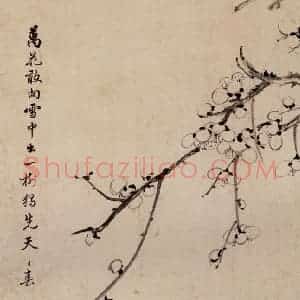 萬花敢向雪中出一樹獨先天下春
Shufaziliao.com